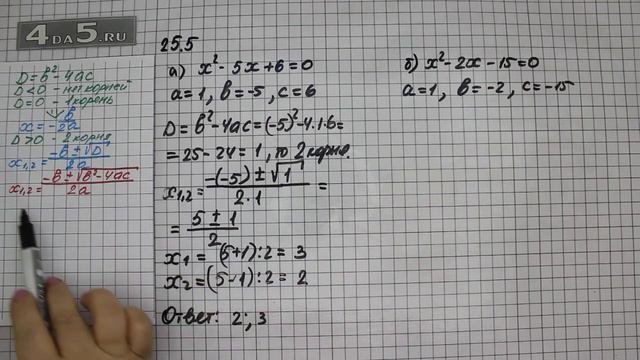 4DA5.RU
D = b² - 4ac
D < 0 - нет корней
D = 0 - 1 корень
x = -b/2a
D > 0 - 2 корня
x₁,₂ = (-b ± √D)/2a
x₁,₂ = (-b ± √(b² - 4ac))/2a
25.5
а) x² - 5x + 6 = 0
a = 1, b = -5, c = 6
D = b² - 4ac = (-5)² - 4·1·6 =
= 25 - 24 = 1, то 2 корня.
x₁,₂ = (-(-5) ± √1)/(2·1) =
= (5 ± 1)/2
x₁ = (5+1):2 = 3
x₂ = (5-1):2 = 2
Ответ: 2; 3
б) x² - 2x - 15 = 0
a = 1, b = -2, c = -15